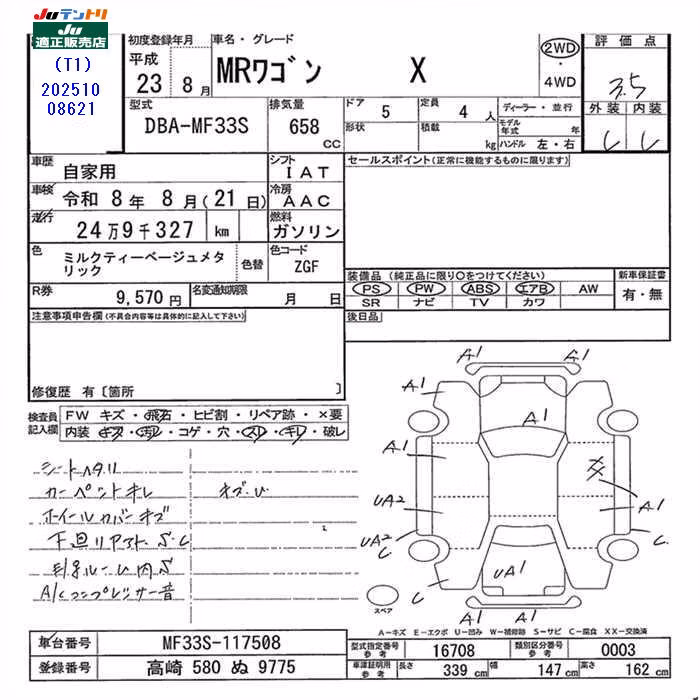 JUテントリ
JU
適正販売店
(T1)
202510
08621
初度登録年月
平成
23 年 8 月
車名・グレード
MRワゴン X
2WD
・
4WD
評価点
3.5
外装 内装
C C
型式
DBA-MF33S
排気量
658
CC
ドア
5
定員
4 人
ディーラー・並行
形状
積載
kg
モデル年式 年
ハンドル 左・右
車歴
自家用
シフト
IAT
車検
令和 8 年 8 月(21 日)
冷房
AAC
走行
24万9千327 km
燃料
ガソリン
色
ミルクティーベージュメタリック
色替
色コード
ZGF
R券
9,570 円
名変通知期限
月 日
セールスポイント(正常に機能するものに限ります)
装備品(純正品に限り○をつけてください)
PS PW ABS エアB AW
SR ナビ TV カワ
新車保証書
有・無
後日品
注意事項申告欄(不具合内容等は具体的に記入して下さい)
修復歴 有〔箇所 〕
検査員
記入欄
FW キズ・飛石・ヒビ割・リペア跡・×要
内装 キズ・汚レ・コゲ・穴・スレ・キレ・破レ
シートヘタリ
カーペットキレ
キズ・U
ホイールカバーキズ
下廻りアストS・C
A/Cコンプレッサー音
A1 A1
A1 A1
A1
A1 XX
UA2 A1
UA2
C C
C UA1
スペア
A-キズ E-エクボ U-凹み W-補修跡 S-サビ C-腐食 XX-交換済
車台番号
MF33S-117508
登録番号
高崎 580 ぬ 9775
型式指定番号
参考
16708
類別区分番号
参考
0003
車庫証明用
参考
長さ
339 cm
幅
147 cm
高さ
162 cm